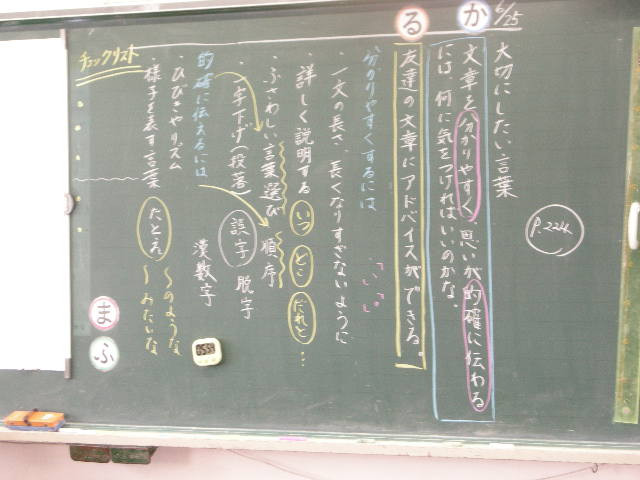 6/25
大切にしたい言葉
P.224
か
文章を分かりやすく、思いが的確に伝わる
には、何に気をつければいいのかな。
る
友達の文章にアドバイスができる。
分かりやすくするには
・一文の長さ、長くなりすぎないように
・詳しく説明する いつ どこ だれと…
・ふさわしい言葉選び 順序
・一字下げ(段落) 誤字 脱字
漢数字
的確に伝えるには
・ひびきやリズム
・様子を表す言葉 たとえ 〜のような
〜みたいな
チェックリスト
ま
ふ